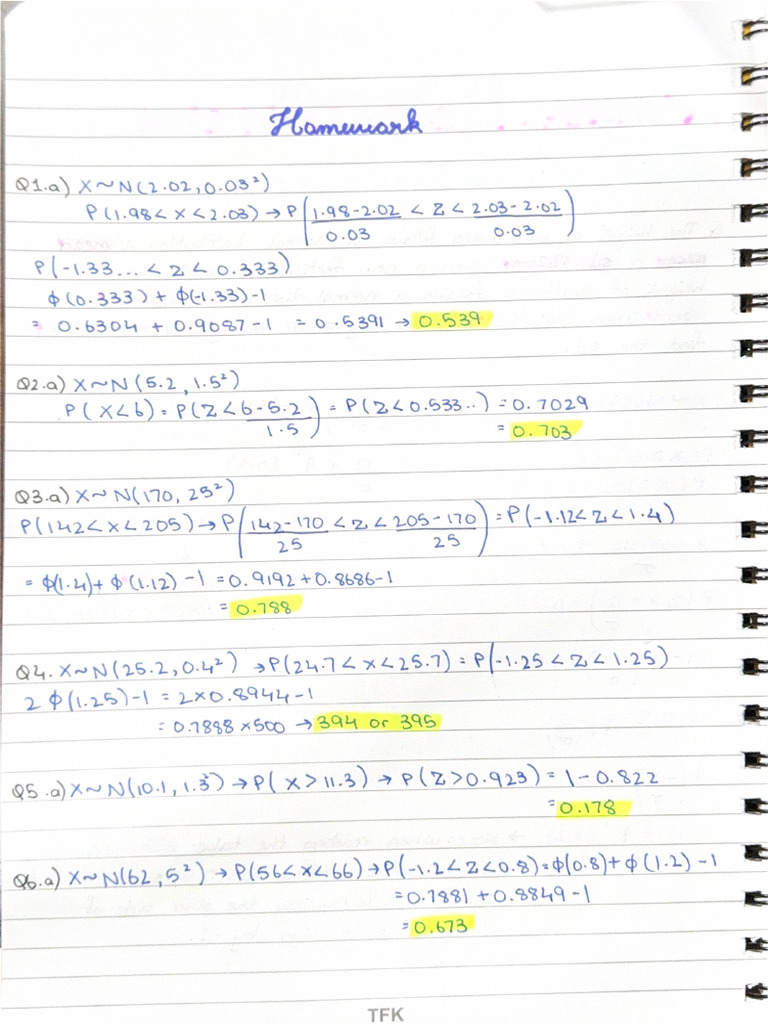 Homework
Q1.a) X~N(2.02, 0.03²)
P(1.98< X < 2.03) → P(1.98-2.02 < Z < 2.03-2.02)
0.03 0.03
P(-1.33... < Z < 0.333)
φ(0.333) + φ(-1.33)-1
= 0.6304 + 0.9087 -1 = 0.5391 → 0.539
Q2.a) X~N(5.2, 1.5²)
P(X<6) = P(Z<6-5.2) = P(Z<0.533..) = 0.7029
1.5
= 0.703
Q3.a) X~N(170, 25²)
P(142<X<205) → P(142-170 < Z < 205-170) = P(-1.12<Z<1.4)
25 25
= φ(1.4)+ φ(1.12) -1 = 0.9192+0.8686-1
= 0.788
Q4. X~N(25.2, 0.4²) → P(24.7< X<25.7) = P(-1.25 < Z < 1.25)
2 φ(1.25)-1 = 2×0.8944-1
= 0.7888 ×500 → 394 or 395
Q5.a) X~N(10.1, 1.3²) → P(X> 11.3) → P(Z>0.923) = 1-0.822
= 0.178
Q6.a) X~N(62, 5²) → P(56<X<66) → P(-1.2<Z<0.8) = φ(0.8)+ φ(1.2) -1
= 0.7881 + 0.8849-1
= 0.673
TFK